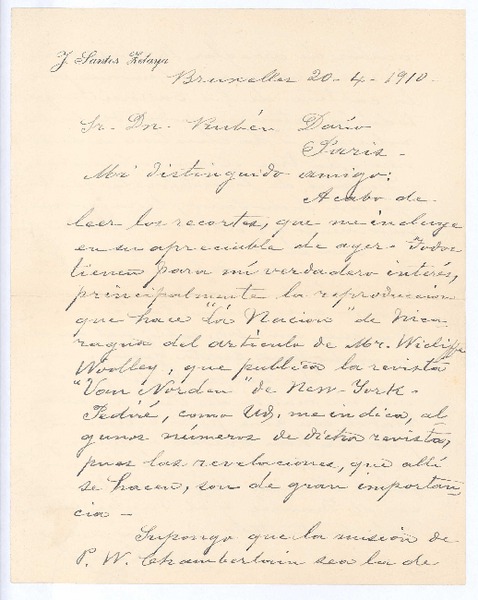 J. Santos Zelaya
Bruxelles 20-4-1910.
Sr. Dn. Rubén Darío
Paris-
Mi distinguido amigo:
Acabo de
leer los recortes, que me incluye
en su apreciable de ayer. Todos
tienen para mí verdadero interés,
principalmente la reproducción
que hace "La Nación" de Nica-
ragua del artículo de Mr. Wicliffe
Woolley, que publica la revista
"Van Norden" de New-York-
Pediré, como Ud, me indica, al
gunos números de dicha revista,
pues las revelaciones, que allí
se hacen, son de gran importan
cia-
Supongo que la misión de
P. W. Chamberlain sea la de